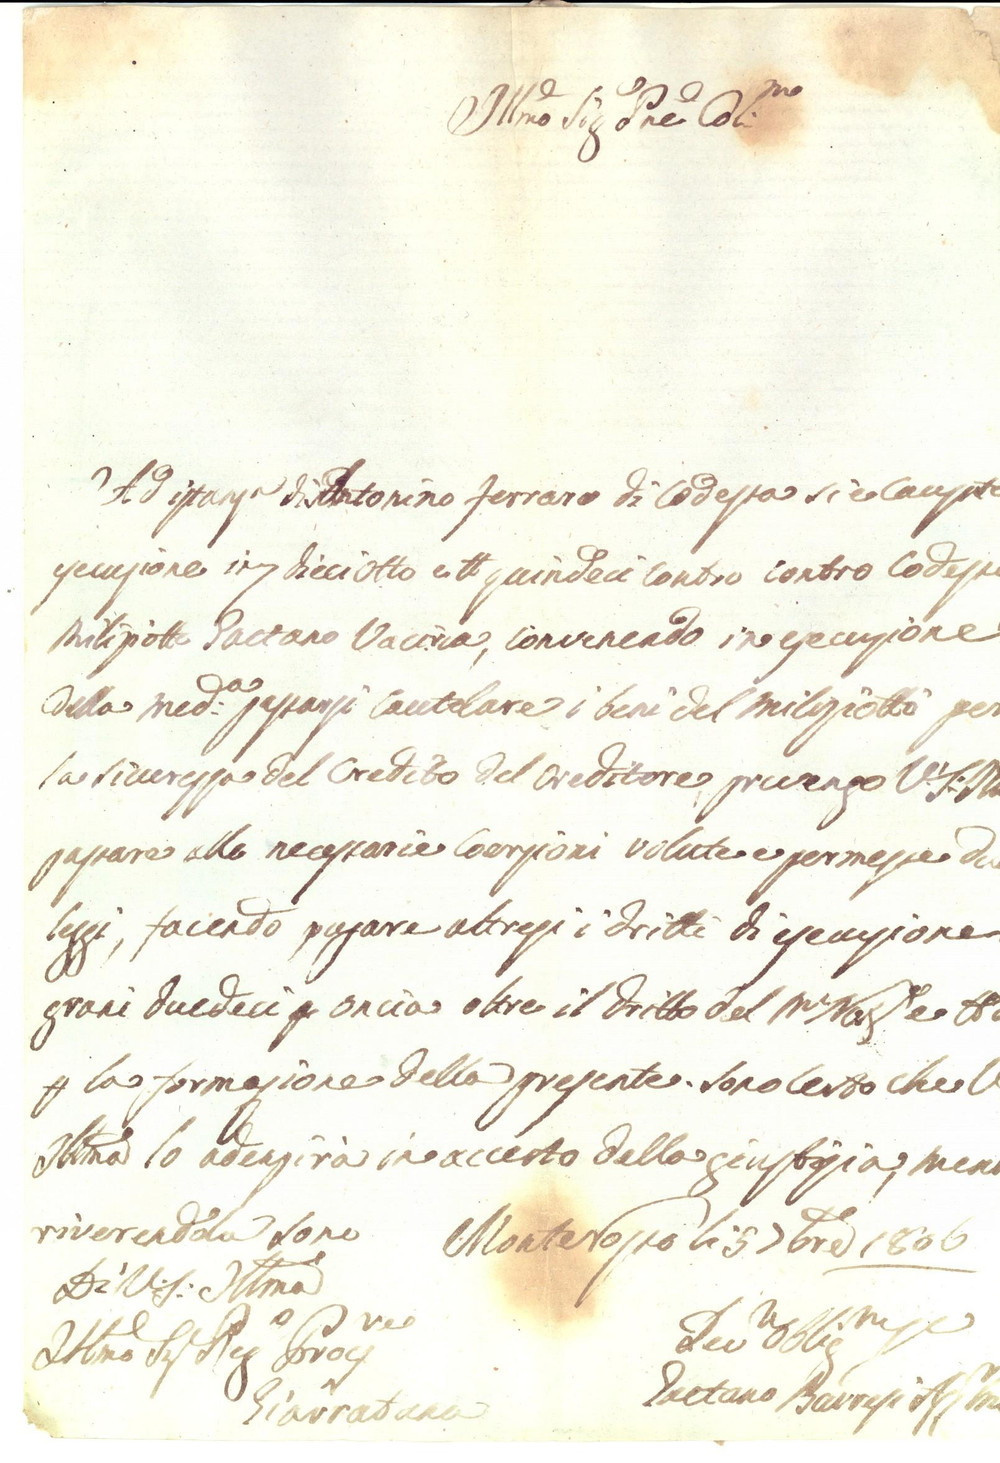 Illmo Sig.e Pne Col.mo
Ad istanza di Antonino Ferraro di Codessa si è
esecuzione in diciotto e tt quindeci contro contro Codesso
Miliziotto Gaetano Vaccira, convenendo in esecuzione
della med:a passarsi Cautelare i beni del Miliziotto per
la sicurezza del Credito del Creditore, prevengo V:S:
passare alle necessarie Coerzioni volute e permesse
leggi, facendo pagare altresi i dritti di esecuzione
grani duedeci p oncia oltre il dritto del
p la formazione della presente. Sono Certo che
Illma lo adempirà in accerto della giustizia, mentre
riverendola sono
Monterosso li 5 7bre 1806
Di V:S: Illma
Illmo Sig Reg Proc
Giarratana
Dev Oblig
Gaetano Barresi